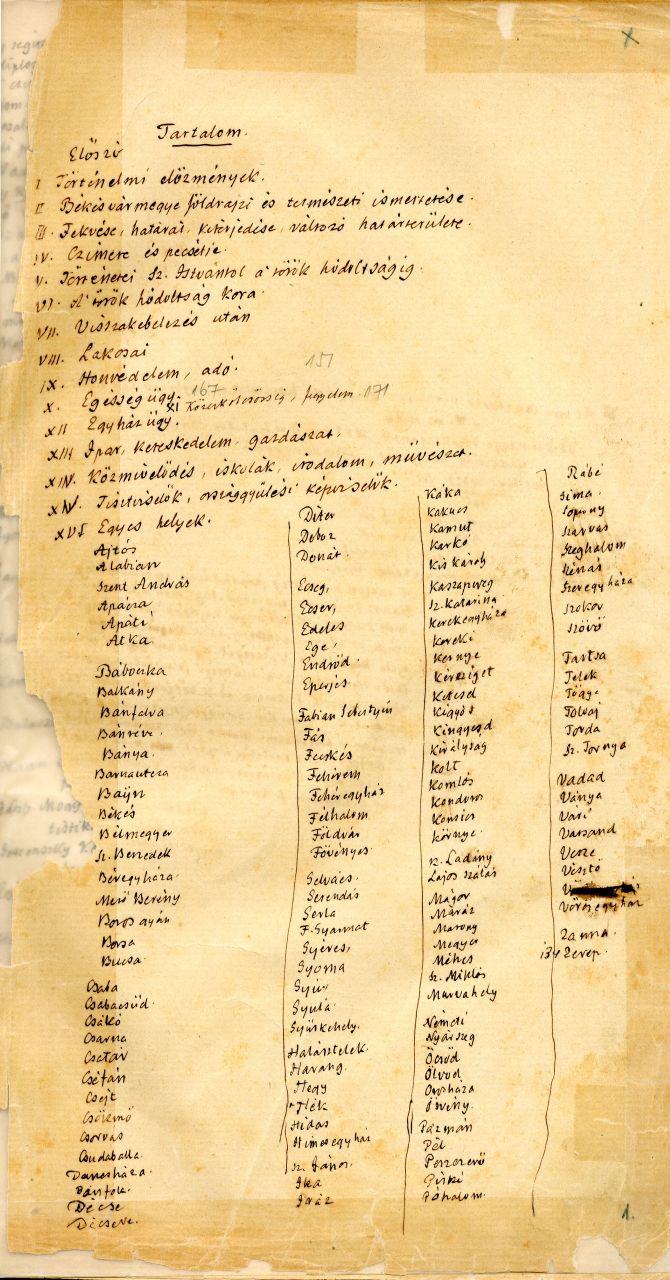 Tartalom.
Előszó
I Történelmi előzmények.
II Békésvármegye földrajzi és természeti ismertetése.
III. Fekvése, határai, kiterjedése, változó határterülete.
IV. Czímere és pecsétje.
V. Történetei Sz. Istvántól a török hódoltságig.
VI. A török hódoltság kora.
VII. Visszakebelezés után
VIII. Lakosai
IX. Honvédelem, adó. 151
X. Egészségügy. 167
XI Közerkölcsösség, fegyelem 171
XII Egyházügy.
XIII Ipar, kereskedelem, gazdászat.
XIV. Közmivelődés, iskolák, irodalom, művészet.
XIV. Tisztviselők, országgyülési képviselők.
XVI Egyes helyek.
Ajtós
Alabian
Szent András
Apácza
Apáti
Atka
Báboczka
Balkány
Bánfalva
Bánréve
Bánya
Bajin
Békés
Bélmegyer
Sz. Benedek
Béregyháza
Mező Berény
Boros gyán
Borsa
Bucsa
Csaba
Csabacsüd
Csákó
Csarna
Csatár
Csejt
Csorvás
Csudaballa
Danczháza
Dánfok
Décse
Décseve
Déter
Doboz
Donát
Ecseg
Ecser
Edeles
Ege
Endrőd
Eperjes
Fábián Sebestyén
Fás
Fazekas
Fehérem
Fehéregyház
Félhalom
Földvár
Fövényes
Gelvács
Gerendás
Gerla
F. Gyarmat
Gyéres
Gyoma
Gyúr
Gyula
Gyüskehely
Halásztelek
Harang
Hegy
Hidas
Himesegyház
Sz. János
Ika
Iráz
Káka
Kakucs
Kamut
Karkó
Kis Károly
Kaszapereg
Sz. Katalina
Kerekegyháza
Kereki
Kernye
Kérsziget
Keteséd
Kigyós
Kingyegd
Királyság
Kolt
Komlós
Kondoros
Környe
K. Ladány
Lajos szállás
Mágor
Máráz
Marony
Megyer
Méhes
Sz. Miklós
Murvahely
Némdi
Nyárszeg
Öcsöd
Ölvöd
Orosháza
Ösvény
Pázmán
Pél
Perzerző
Piski
Póhalom
Rábé
Sima
Sopony
Szarvas
Szeghalom
Szénás
Szeregyháza
Szokor
Szővő
Tartsa
Telek
Töge
Tolvaj
Torda
Sz. Tornya
Vadad
Ványa
Vari
Varsand
Vesze
Vésztő
Vörösegyház
Zanna
134 Zerep
1.